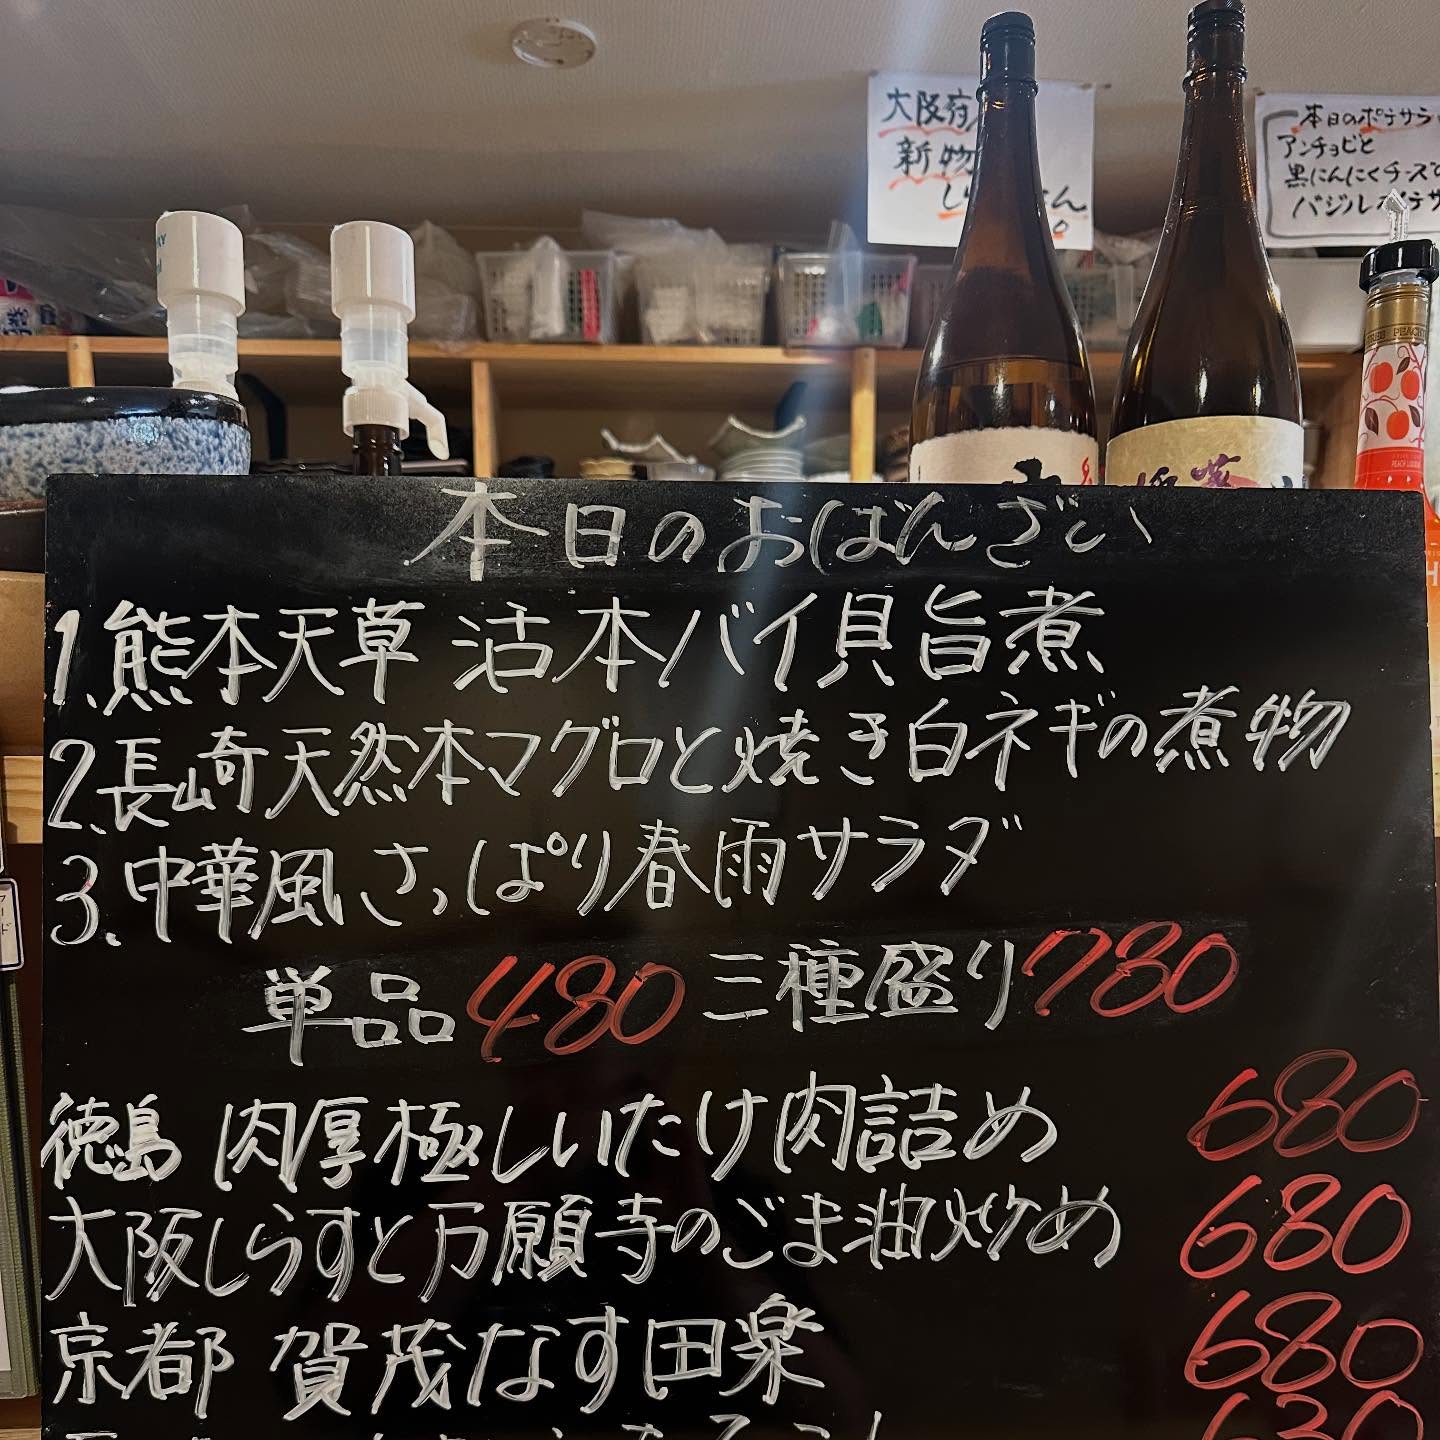 大阪府
新物
本日のポテサラ
アンチョビと
黒にんにくチーズの
バジルポテサ
本日のおばんざい
1.熊本天草 活本バイ貝旨煮
2.長崎天然本マグロと焼き白ネギの煮物
3.中華風さっぱり春雨サラダ
単品480 三種盛り780
徳島 肉厚極しいたけ肉詰め 680
大阪しらすと万願寺のごま油炒め 680
京都 賀茂なす田楽 680
630